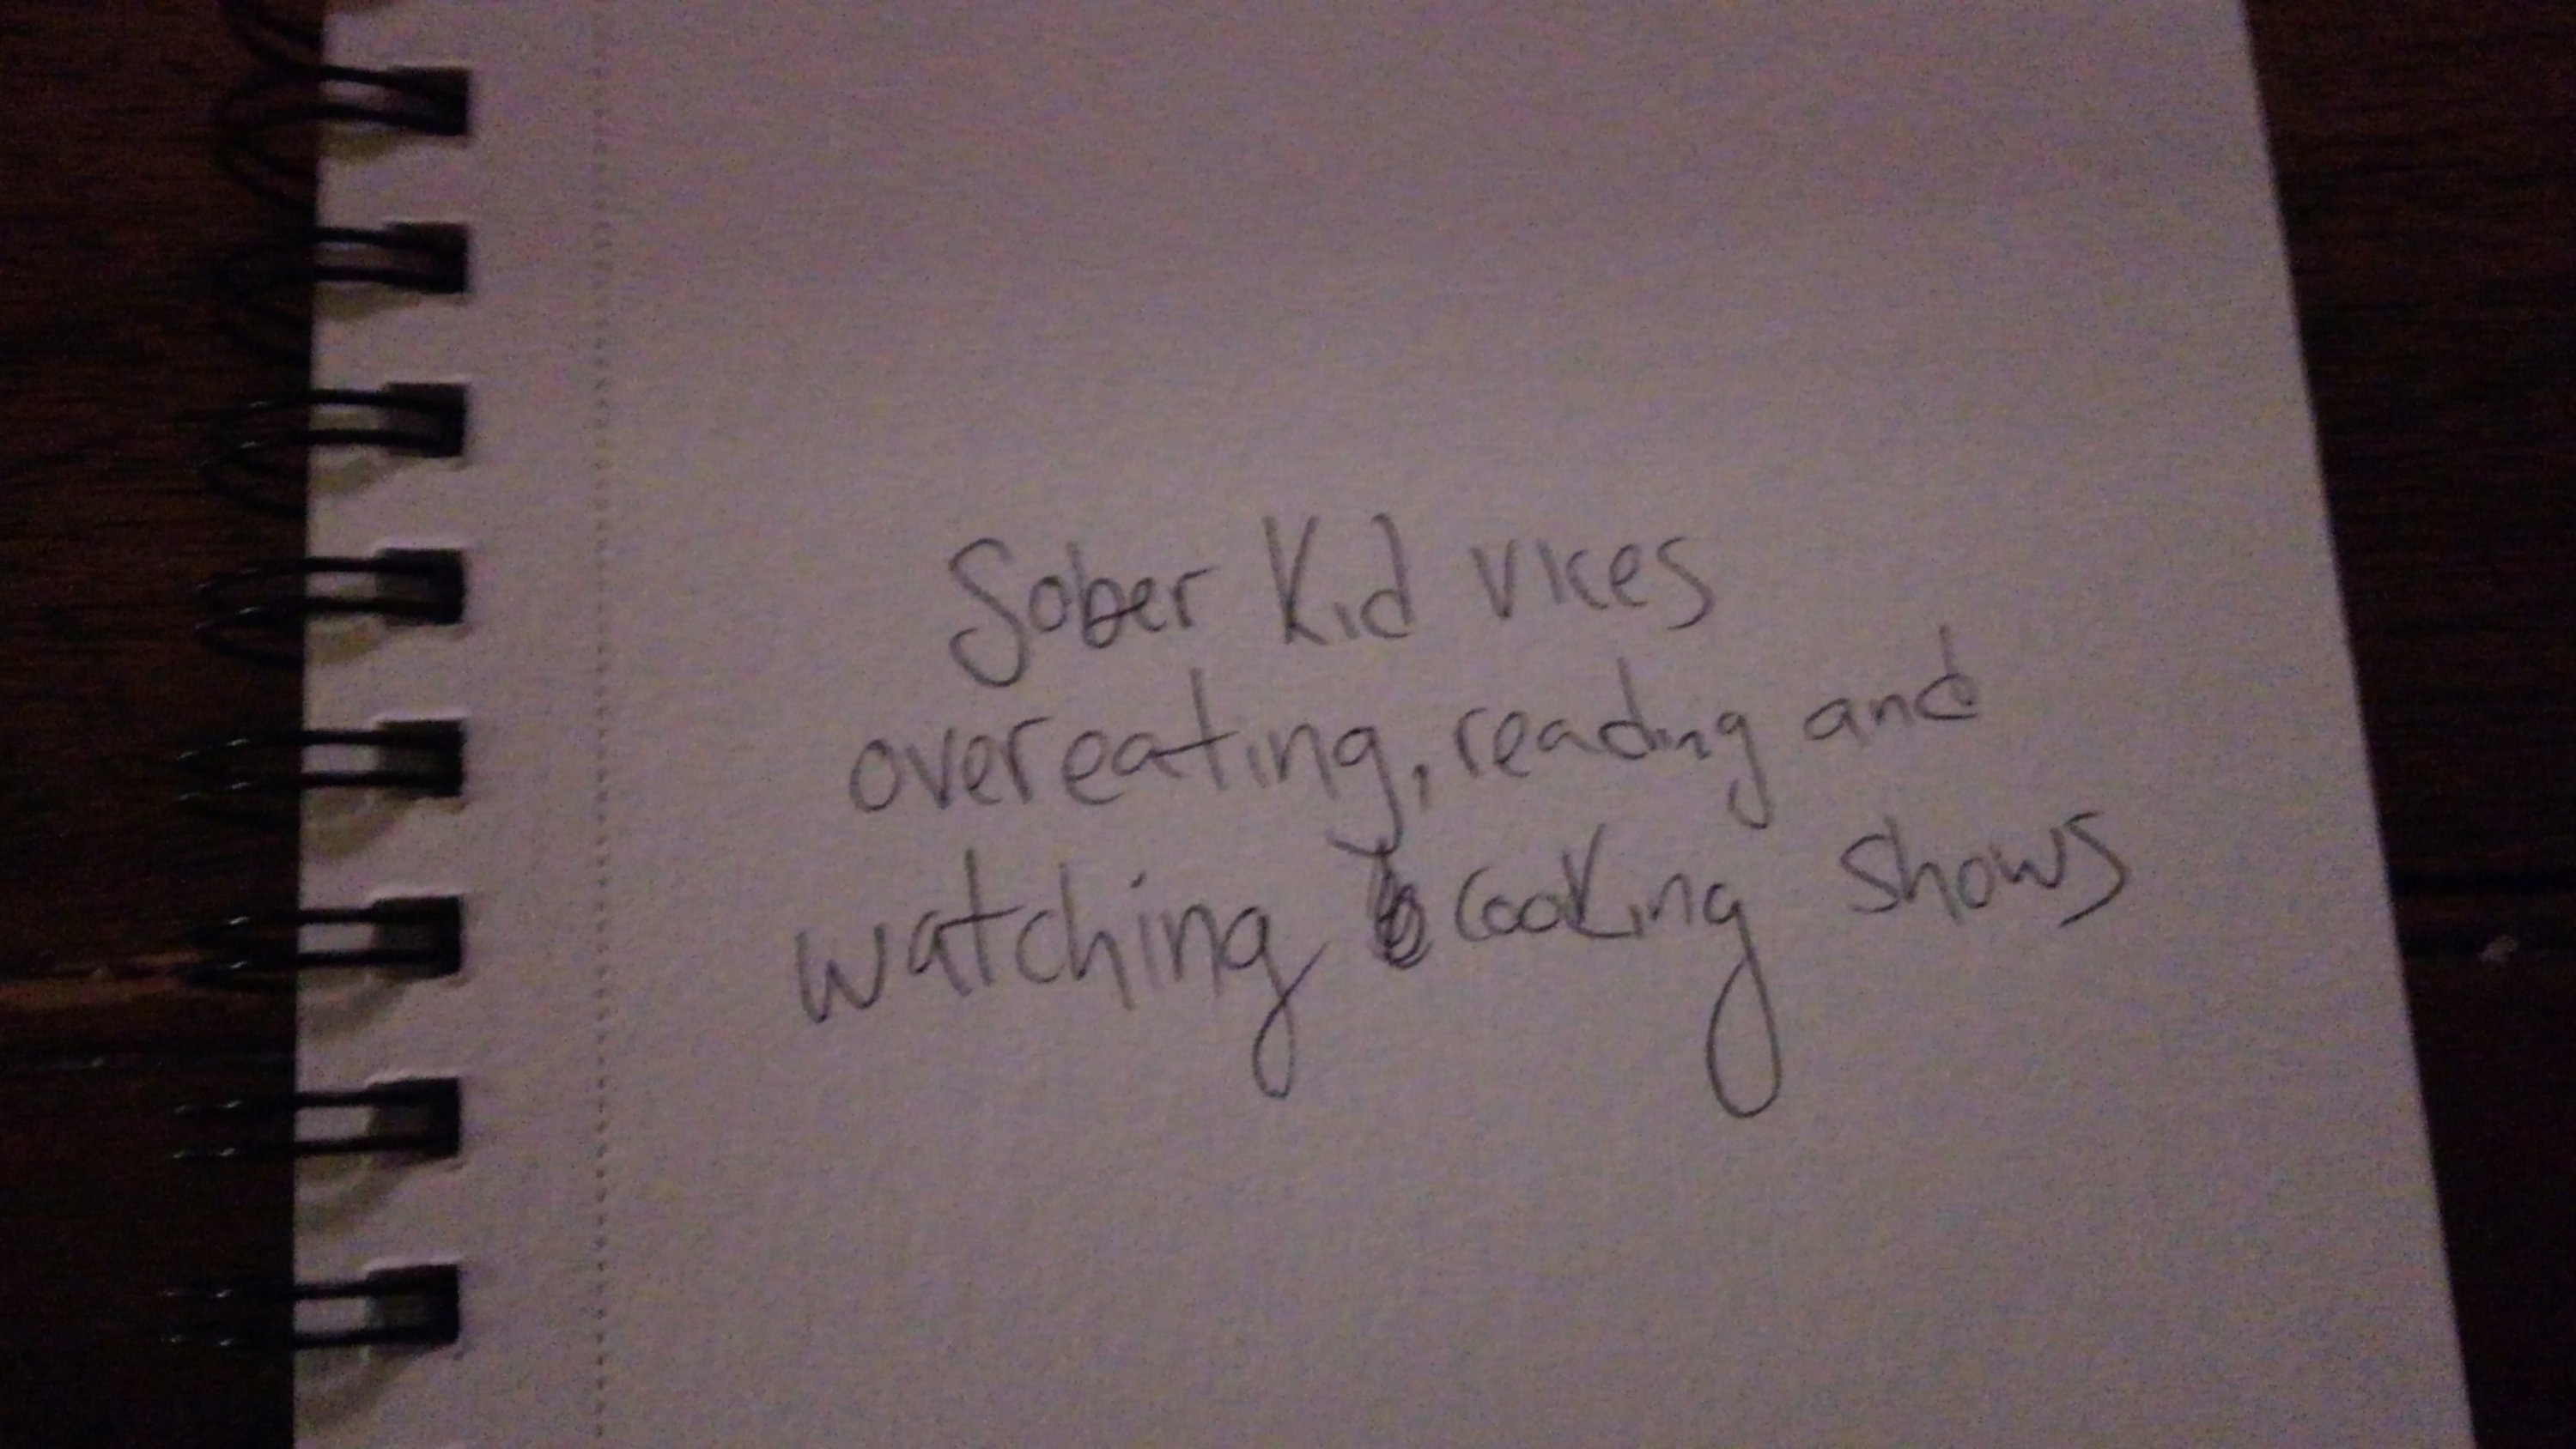 Sober Kid vices
overeating, reading and
watching cooking shows